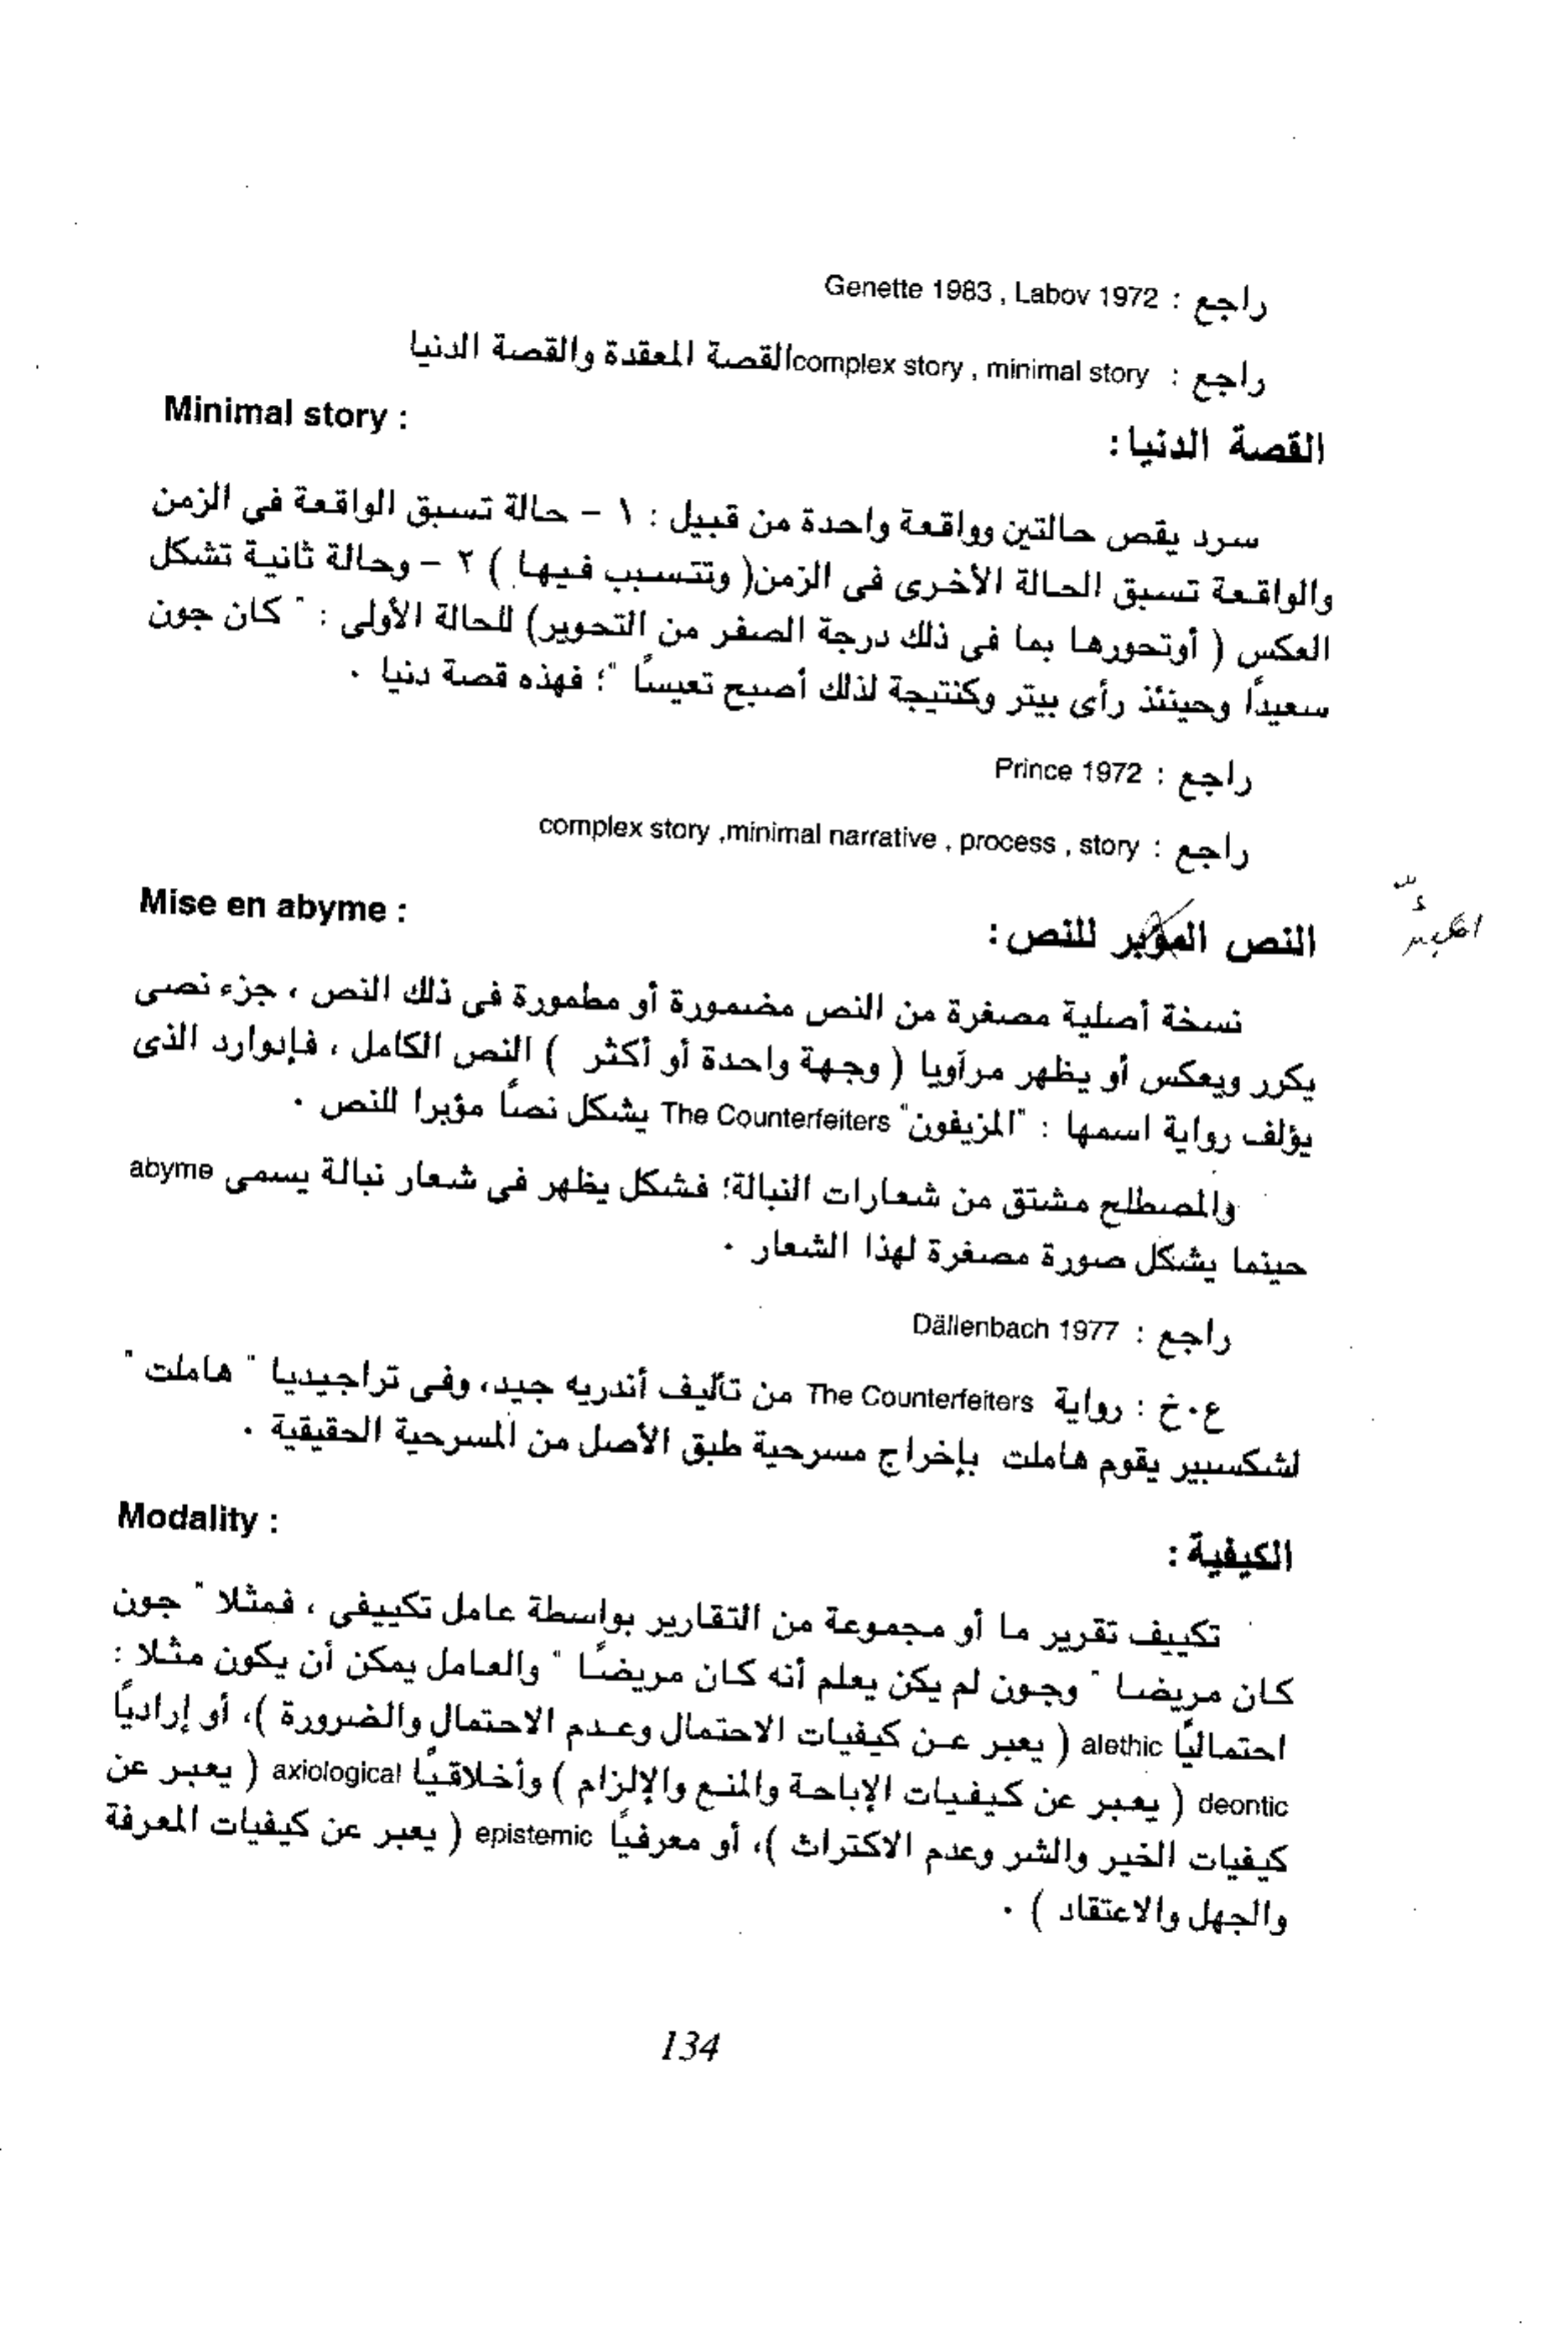 راجع : Genette 1983 , Labov 1972
راجع : complex story , minimal story القصة المعقدة والقصة الدنيا
Minimal story :
القصة الدنيا:
سرد يقص حالتين وواقعة واحدة من قبيل : ١ - حالة تسبق الواقعة فى الزمن
والواقعة تسبق الحالة الأخرى فى الزمن( وتتسبب فيها ) ٢ - وحالة ثانية تشكل
العكس ( أوتحورها بما فى ذلك درجة الصفر من التحوير) للحالة الأولى : " كان جون
سعيداً وحينئذ رأى بيتر وكنتيجة لذلك أصبح تعيساً "؛ فهذه قصة دنيا .
راجع : Prince 1972
راجع : complex story ,minimal narrative , process , story
Mise en abyme :
النص المؤبر للنص:
نسخة أصلية مصغرة من النص مضمورة أو مطمورة فى ذلك النص ، جزء نصى
يكرر ويعكس أو يظهر مرآويا ( وجهة واحدة أو أكثر ) النص الكامل ، فإدوارد الذى
يؤلف رواية اسمها : "المزيفون" The Counterfeiters يشكل نصاً مؤبرا للنص .
والمصطلح مشتق من شعارات النبالة؛ فشكل يظهر فى شعار نبالة يسمى abyme
حينما يشكل صورة مصغرة لهذا الشعار .
راجع : Dällenbach 1977
ع.خ : رواية The Counterfeiters من تأليف أندريه جيد، وفى تراجيديا " هاملت "
لشكسبير يقوم هاملت بإخراج مسرحية طبق الأصل من المسرحية الحقيقية .
Modality :
الكيفية :
تكييف تقرير ما أو مجموعة من التقارير بواسطة عامل تكييفى ، فمثلا " جون
كان مريضا " وجون لم يكن يعلم أنه كان مريضاً " والعامل يمكن أن يكون مثلا :
احتمالياً alethic ( يعبر عن كيفيات الاحتمال وعدم الاحتمال والضرورة )، أو إرادياً
deontic ( يعبر عن كيفيات الإباحة والمنع والإلزام ) وأخلاقياً axiological ( يعبر عن
كيفيات الخير والشر وعدم الاكتراث )، أو معرفياً epistemic ( يعبر عن كيفيات المعرفة
والجهل والاعتقاد ) .
134